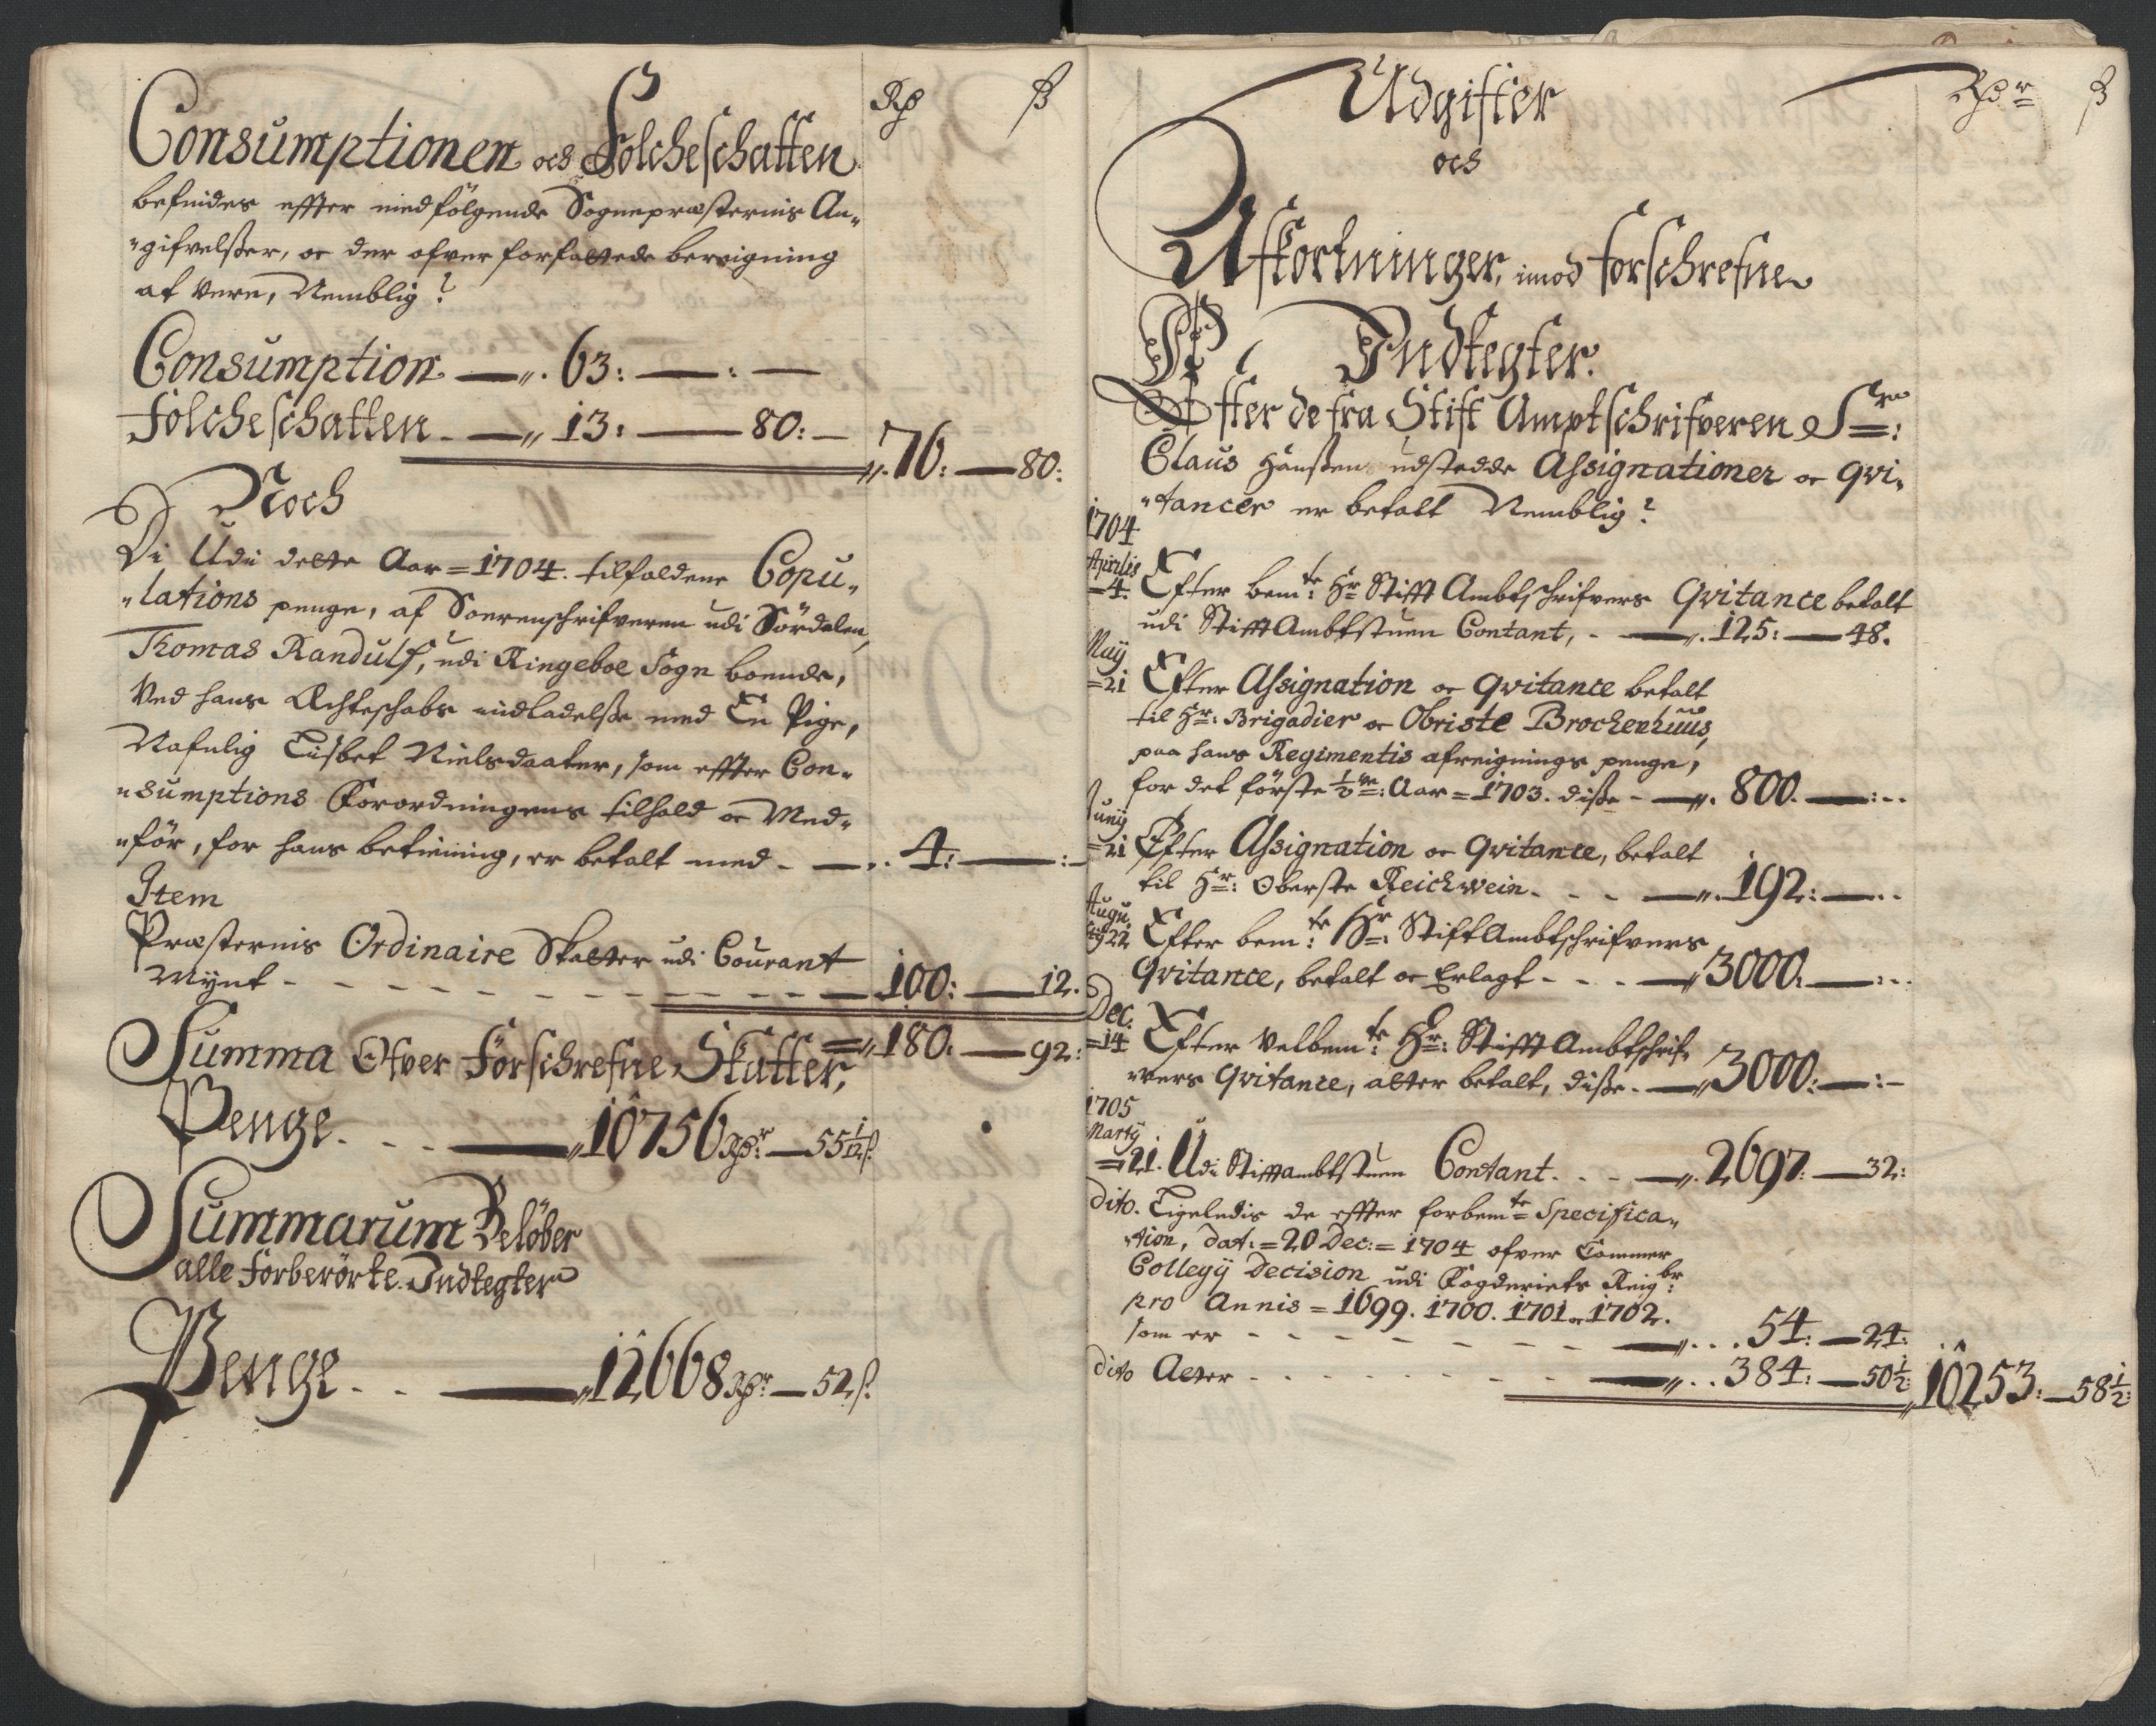 Rdr ß
Consumptionen och Folcheschatten
befindes effter medfölgende Sognepræsternis An-
gifvelsser, oc der ofver forfattede beregning
at vere, Nemblig
Consumption — 63: — : —
Folcheschatten — 13: — 80: —
76: — 80:
Noch
Di Udi dette Aar = 1704. tilfaldene Copu-
lations penge, af Sorenschrifveren udi Sördalen,
Thomas Randulf, udi Ringeboe Sogn boende,
Ved hans Achteschabs indladelsse med En Pige,
Nafnlig Lisbet Nielsdaater, som effter Con-
sumptions Forordningens tilhold oc Med-
för, for hans betiening, er betalt med — 4: — : —
Item
Præsternis Ordinaire Skatter udi Courant
Mynt — 100: — 12.
180: — 92:
Summa Ofver Forschrefne Skatter,
Penge — 10756 Rdr — 55 1/12 ß
Summarum Belöber
alle forberörte Indtegter
Penge — 12668 Rdr — 52 ß
Udgifter Rdr ß
och
Afkortninger, imod forschrefne
Indtegter.
Efter de fra Stift Amptschrifveren Sr:
Claus Hanssen udstedde Assignationer oc qvi-
tancer er betalt Nemblig
1704
Aprilis
4. Efter bemte: Hr Stifft Ambtschrifvers Qvitance betalt
udi Stifft Ambtstuen Contant, — 125: — 48.
Maij
21 Efter Assignation oc qvitance betalt
til Hr: Brigadier oc Obriste Brochenhuus,
paa hans Regimentis afreignings penge,
for det förste 1/2 Aar = 1703. disse — 800. — : —
Junij
21 Efter Assignation oc qvitance, betalt
til Hr: Oberste Reichwein — 192: —
Augu-
stij 22 Efter bemte: Hr: Stift Ambtschrifvers
qvitance, betalt oc Erlagt — 3000: — : —
Dec.
14 Efter Velbemte: Hr: Stifft Ambtschrif-
vers qvitance, atter betalt, disse — 3000: — : —
1705
Martij
21. Udi Stifftambtstuen Contant — 2697: — 32:
Dito. Ligeledis de effter forbemte Specifica-
tion, dat: = 20 Dec: = 1704 ofver Cammer
Collegij Decision udi Fogderiets Reigbr:
pro Annis = 1699. 1700. 1701 oc 1702.
som er — 54: — 24:
dito Atter — 384: — 50 1/2:
10253: — 58 1/2: